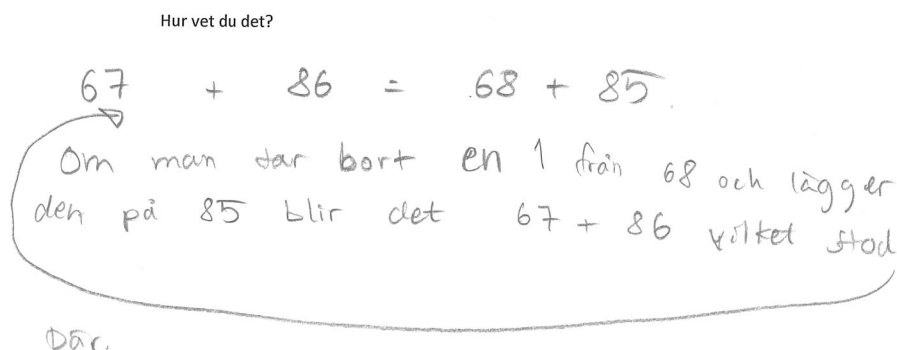 Hur vet du det?
67 + 86 = 68 + 85.
Om man tar bort en 1 från 68 och lägger
den på 85 blir det 67 + 86 vilket stod
Där.